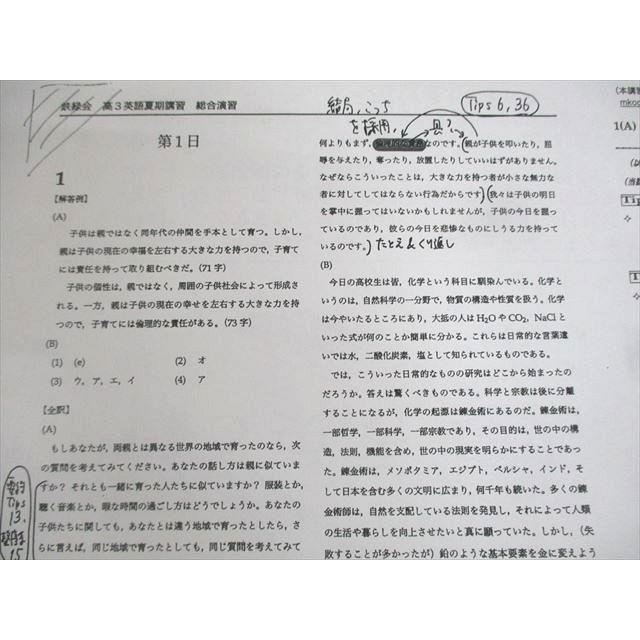 鉄緑会 高３英語夏期講習 総合演習
第１日
1
【解答例】
(A)
子供は親ではなく同年代の仲間を手本として育つ。しかし，
親は子供の現在の幸福を左右する大きな力を持つので，子育て
には責任を持って取り組むべきだ。(71 字)
子供の個性は，親ではなく，周囲の子供社会によって形成さ
れる。一方，親は子供の現在の幸せを左右する大きな力を持
つので，子育てには倫理的な責任がある。(73 字)
(B)
(1) (e) (2) オ
(3) ウ，ア，エ，イ (4) ア
【全訳】
(A)
もしあなたが，両親とは異なる世界の地域で育ったのなら，次
の質問を考えてみてください。あなたの話し方は親に似ていま
すか？ それとも一緒に育った人たちに似ていますか？ 服装とか，
聴く音楽とか，暇な時間の過ごし方はどうでしょうか。あなたの
子供たちに関しても，あなたとは違う地域で育ったとしたら，さ
らに言えば，同じ地域で育ったとしても，同じ質問を考えてみて
要約
Tips
13.
15
結局，こっち
を採用，
具？
Tips 6, 36
何よりもまず，倫理的な責任なのです。親が子供を叩いたり，屈
辱を与えたり，奪ったり，放置したりしていいはずがありません。
なぜならこういったことは，大きな力を持つ者が小さな無力な
者に対してしてはならない行為だからです。我々は子供の明日
を掌中に握ってはいないかもしれませんが，子供の今日を握っ
ているのであり，彼らの今日を悲惨なものにしうる力を持って
いるのです。
たとえ＆くり返し
(B)
今日の高校生は皆，化学という科目に馴染んでいる。化学と
いうのは，自然科学の一分野で，物質の構造や性質を扱う。化学
は今やいたるところにあり，大抵の人は H₂O や CO₂，NaCl と
いった式が何のことか簡単に分かる。これらは日常的な言葉遣
いでは水，二酸化炭素，塩として知られているものである。
では，こういった日常的なものの研究はどこから始まったの
だろうか。答えは驚くべきものである。科学と宗教は後に分離
することになるが，化学の起源は錬金術にあるのだ。錬金術は，
一部哲学，一部科学，一部宗教であり，その目的は，世の中の構
造，法則，機能を含め，世の中の現実を明らかにすることであっ
た。錬金術は，メソポタミア，エジプト，ペルシャ，インド，そ
して日本を含む多くの文明に広まり，何千年も続いた。多くの錬
金術師は，自然を支配している法則を発見し，それによって人類
の生活や暮らしを向上させたいと真に願っていた。しかし，(失
敗することが多かったが) 鉛のような基本要素を金に変えよう
(本講習
mkoc
1(A)